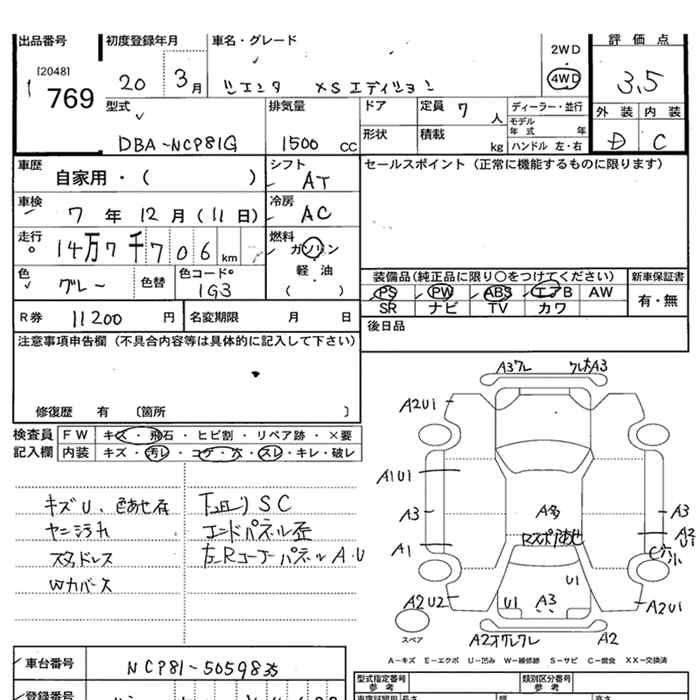 出品番号
[2048]
769
初度登録年月
20 3月
車名・グレード
シエンタ XSエディション
2WD
4WD
評価点
3.5
型式
DBA-NCP81G
排気量
1500 CC
ドア
定員 7 人
ディーラー・並行
モデル年式 年
形状
積載 kg
ハンドル 左・右
外装 内装
D C
車歴
自家用・( )
シフト
AT
セールスポイント (正常に機能するものに限ります)
車検
7年12月(11日)
冷房
AC
走行
14万7千706km
燃料
ガソリン
軽油
( )
色
グレー
色替
色コード
1G3
装備品(純正品に限り○をつけてください)
新車保証書
PS PW ABS エアB AW
有・無
SR ナビ TV カワ
R券 11200円
名変期限 月 日
後日品
注意事項申告欄 (不具合内容等は具体的に記入して下さい)
修復歴 有 〔箇所 〕
検査員
記入欄
FW キズ・飛石・ヒビ割・リペア跡・×要
内装 キズ・汚れ・コゲ・穴・スレ・キレ・破レ
キズU、色あせ在
ヤニ汚れ
スタッドレス
Wカバース
下廻りSC
エンドパネル歪
左Rコーナーパネル A・U
A3ワレ
A3
A2U1
A1U1
A3
A1
A2U2
A多
U1
U1
A3
A3
A2
A2U1
A2
スペア
A-キズ E-エクボ U-凹み W-補修跡 S-サビ C-腐食 XX-交換済
車台番号
NCP81-5059835
登録番号
型式指定番号
参考
類別区分番号
参考